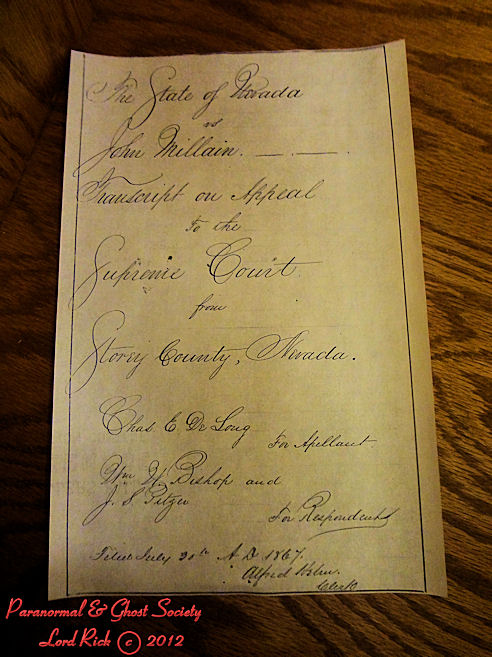 The State of Nevada
vs
John Millain.
Transcript on Appeal
To the
Supreme Court
from
Storey County, Nevada.
Chas. E De Long
For Apellant
Wm W. Bishop and
J. S. Pitzer
For Respondent
Filed July 30th A. D. 1867.
Alfred Helm.
Clerk
Paranormal & Ghost Society
Lord Rick © 2012